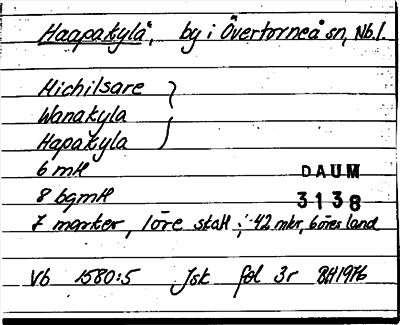 Haapakylä, by i Övertorneå sn, Nb.l.
Michilsare
Wanakyla
Hapakyla
6 mtl
DAUM
8 bgmtl
3138
7 marker, 1 öre skatt; 42 mkr, 6 öres land
Vb 1580:5 Jsk fol 3r BH1976